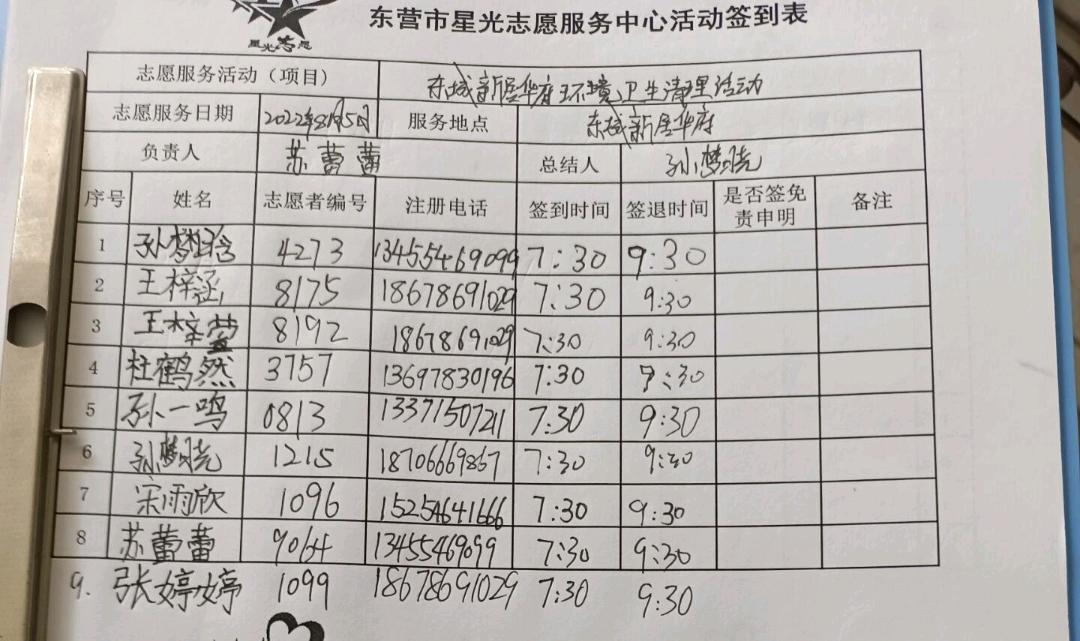 星光志愿
东营市星光志愿服务中心活动签到表
志愿服务活动（项目） 东城新居华府环境卫生清理活动
志愿服务日期 2022年8月5日 服务地点 东城新居华府
负责人 苏蕾蕾 总结人 孙梦晓
序号 姓名 志愿者编号 注册电话 签到时间 签退时间 是否签免责申明 备注
1 孙梦晗 4273 13455469099 7:30 9:30
2 王梓涵 8175 18678691029 7:30 9:30
3 王梓萱 8192 18678691029 7:30 9:30
4 杜鹤然 3757 13697830196 7:30 9:30
5 孙一鸣 0813 13371507211 7:30 9:30
6 孙梦晓 1215 18706669867 7:30 9:30
7 宋雨欣 1096 15254641666 7:30 9:30
8 苏蕾蕾 9064 13455469099 7:30 9:30
9. 张婷婷 1099 18678691029 7:30 9:30